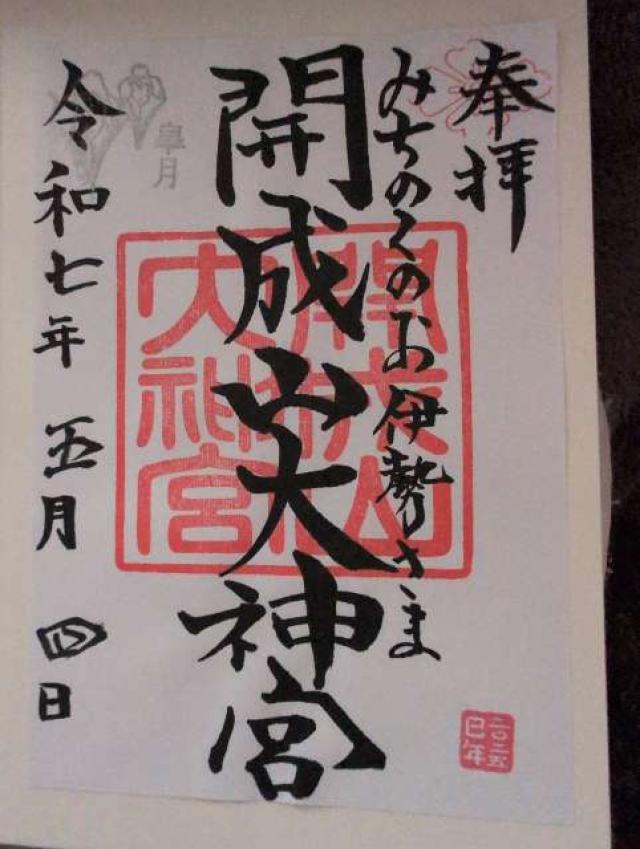 奉拝
みちのくのお伊勢さま
開成山大神宮
皐月
令和七年 五月 四日
開成山
大神宮
二〇二五
巳年